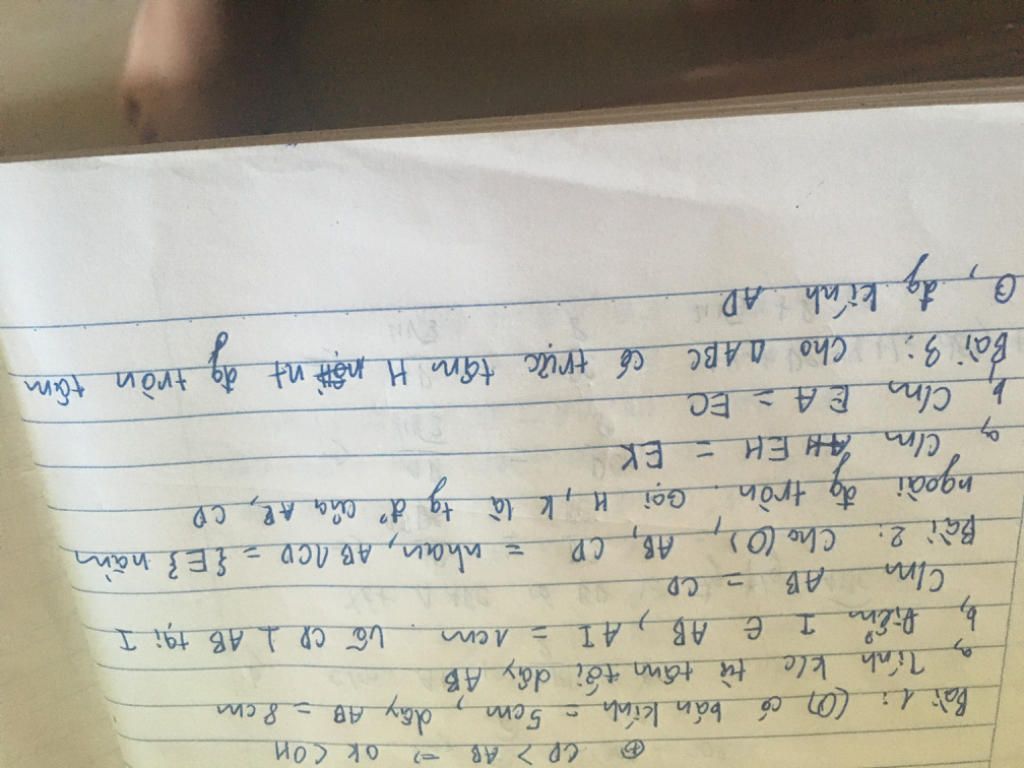 ⊕ CD > AB => OK < OH
Bài 1: (O) có bán kính = 5cm, dây AB = 8cm
a, Tính k/c từ tâm tới dây AB
b, Điểm I ∈ AB, AI = 1cm. Vẽ CD ⊥ AB tại I
C/m AB = CD
Bài 2: Cho (O), AB, CD = nhau, AB ∩ CD = {E} nằm
ngoài đg tròn. Gọi H, K là tg đ' của AB, CD
a, C/m EH = EK
b, C/m EA = EC
Bài 3: Cho △ABC có trực tâm H nt đg tròn tâm
O, đg kính AD